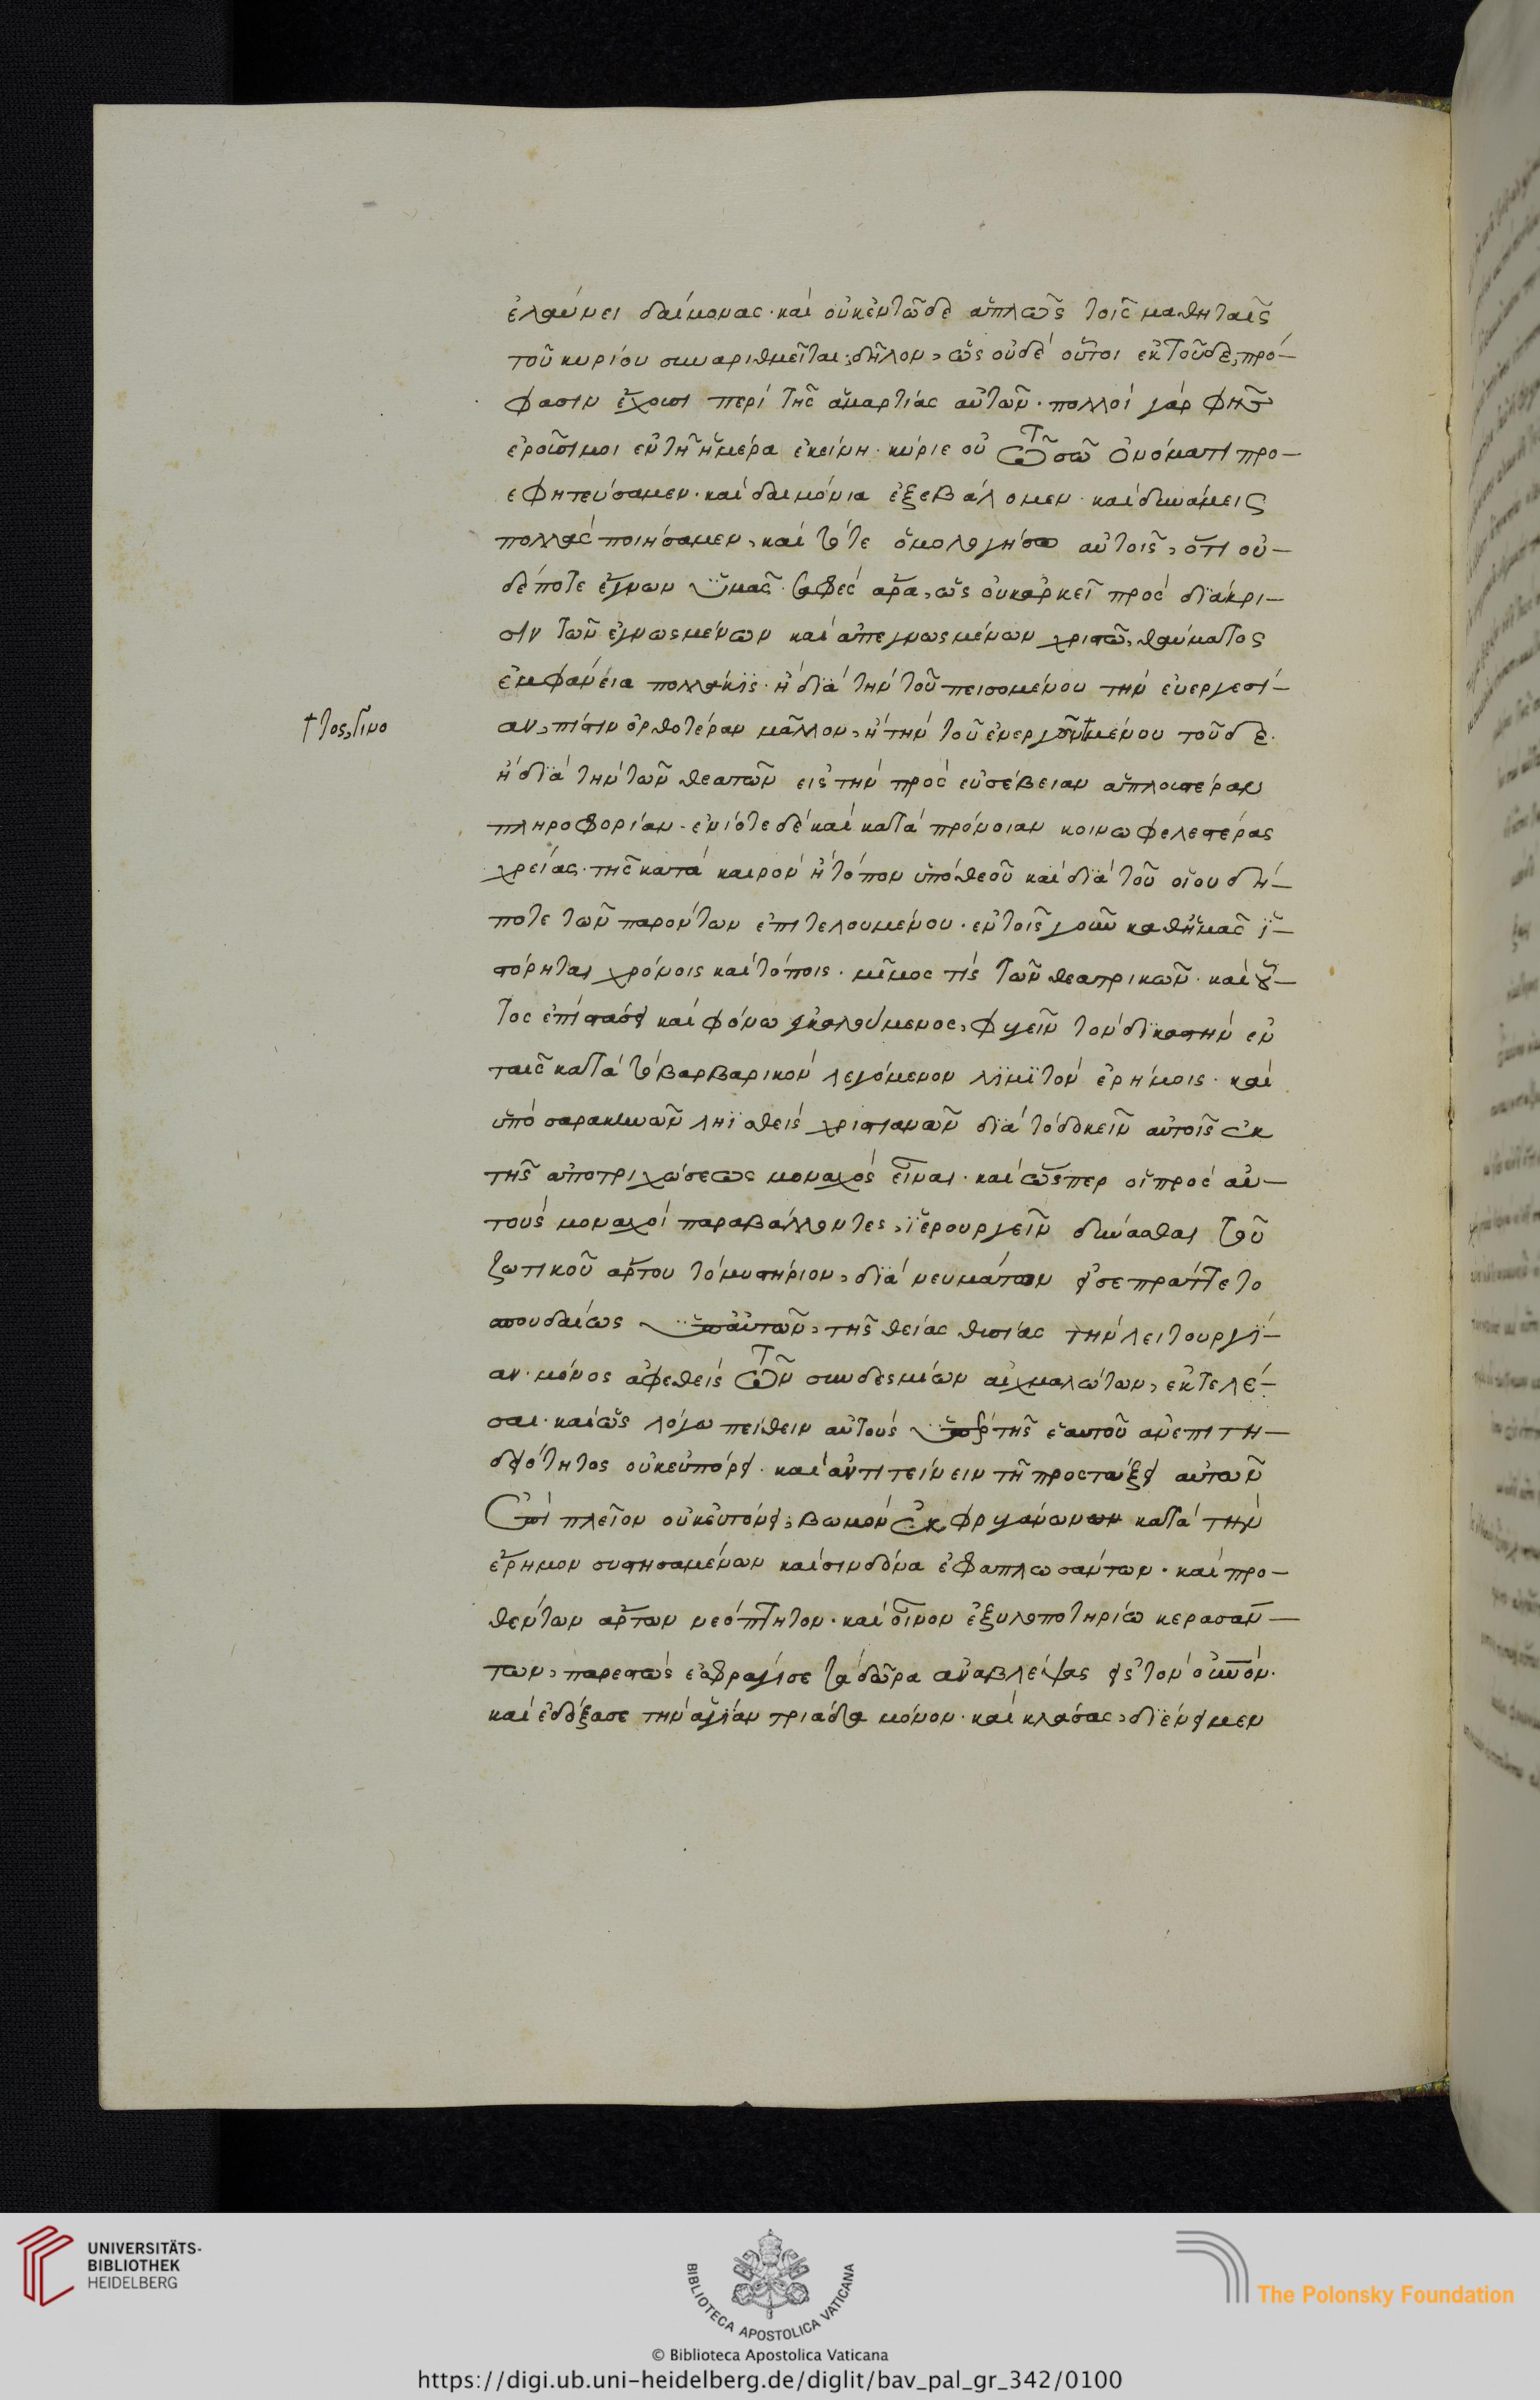 ἐλαύνει δαίμονας· καὶ οὐκ ἐν τῶδε ἁπλῶς τοῖς μαθηταῖς
τοῦ κυρίου συναριθμεῖται, δῆλον, ὡς οὐδὲ οὗτοι ἐκ τοῦδε, πρό-
φασιν ἔχουσι περὶ τῆς ἁμαρτίας αὐτῶν· πολλοὶ γάρ φησ
ἐροῦσί μοι ἐν τῇ ἡμέρα ἐκείνη· κύριε οὐ τῶ σῶ ὀνόματι προ-
εφητεύσαμεν· καὶ δαιμόνια ἐξεβάλομεν· καὶ δυνάμεις
πολλὰς ποιήσαμεν, καὶ τότε ὁμολογήσω αὐτοῖς, ὅτι οὐ-
δέποτε ἔγνων ὑμᾶς· σαφὲς ἄρα, ὡς οὐκ ἀρκεῖ πρὸς διάκρι-
σιν τῶν ἐγνωσμένων καὶ ἀπεγνωσμένων χριστῶ, θαύματος
ἐμφάνεια πολλάκις· ἢ διὰ τὴν τοῦ πεισομένου τὴν εὐεργεσί-
αν, πίστιν ὀρθοτέραν μᾶλλον, ἢ τὴν τοῦ ἐνεργοῦντμένου τοῦδε·
ἢ διὰ τὴν τῶν θεατῶν εἰς τὴν πρὸς εὐσέβειαν ἁπλουστέραν
πληροφορίαν· ἐνίοτε δὲ καὶ κατὰ πρόνοιαν κοινωφελεστέρας
χρείας· τῆς κατὰ καιρὸν ἢ τόπον ὑπὸ θεοῦ καὶ διὰ τοῦ οἵου δή-
ποτε τῶν παρόντων ἐπιτελουμένου· ἐν τοῖς γοῦν καθ' ἡμᾶς ἱ-
στόρηται χρόνοις καὶ τόποις· μῖμος τὶς τῶν θεατρικῶν· καὶ οὗ-
τος ἐπὶ στάσει καὶ φόνω ἐγκαλούμενος, φυγεῖν τὸν δικαστὴν ἐν
ταῖς κατὰ τὸ βαρβαρικὸν λεγόμενον λίμιτον ἐρήμοις· καὶ
ὑπὸ σαρακηνῶν ληϊσθεὶς χριστιανῶν διὰ τὸ δοκεῖν αὐτοῖς ἐκ
τῆς ἀποτριχώσεως μοναχὸς εἶναι· καὶ ὥσπερ οἱ πρὸς αὐ-
τοὺς μοναχοὶ παραβάλλοντες, ἱερουργεῖν δύνασθαι τοῦ
ζωτικοῦ ἄρτου τὸ μυστήριον, διὰ νευμάτων εἰσεπράττετο
σπουδαίως ὑπ' αὐτῶν, τῆς θείας θυσίας τὴν λειτουργί-
αν· μόνος ἀφεθεὶς τῶν συνδεσμίων αἰχμαλώτων, ἐκτελέ-
σαι· καὶ ὡς λόγω πείθειν αὐτοὺς ὑπὲρ τῆς ἑαυτοῦ ἀνεπιτη-
δειότητος οὐκ εὐπόρει· καὶ ἀντιτείνειν τῇ προστάξει αὐτῶν
ἐπὶ πλεῖον οὐκ εὐτόνει, βωμὸν ἐκ φρυγάνων κατὰ τὴν
ἔρημον συστησαμένων καὶ σινδόνα ἐφαπλωσάντων· καὶ προ-
θέντων ἄρτον νεόπτητον· καὶ οἶνον ἐξυλοποτηρίω κερασάν-
των, παρεστὼς ἐσφράγισε τὰ δῶρα ἀναβλέψας εἰς τὸν οὐνόν·
καὶ ἐδόξασε τὴν ἁγίαν τριάδα μόνον· καὶ κλάσας, διένειμεν